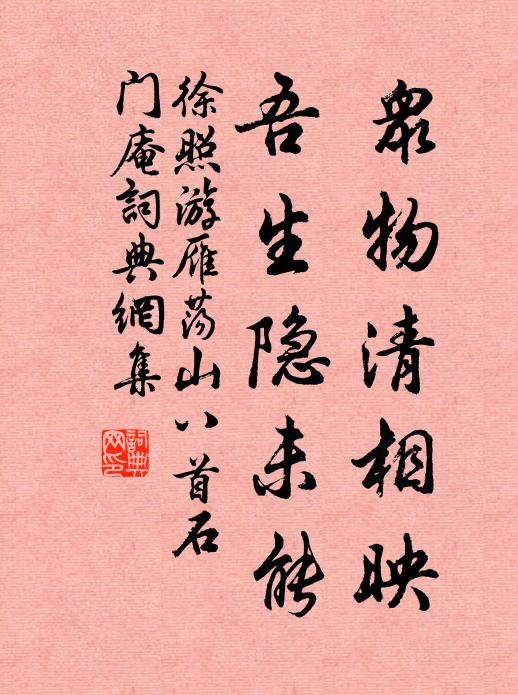 眾物清相映
吾生隐未能
徐照游雁荡山八首石
门庵詞典網集
詞典
网印